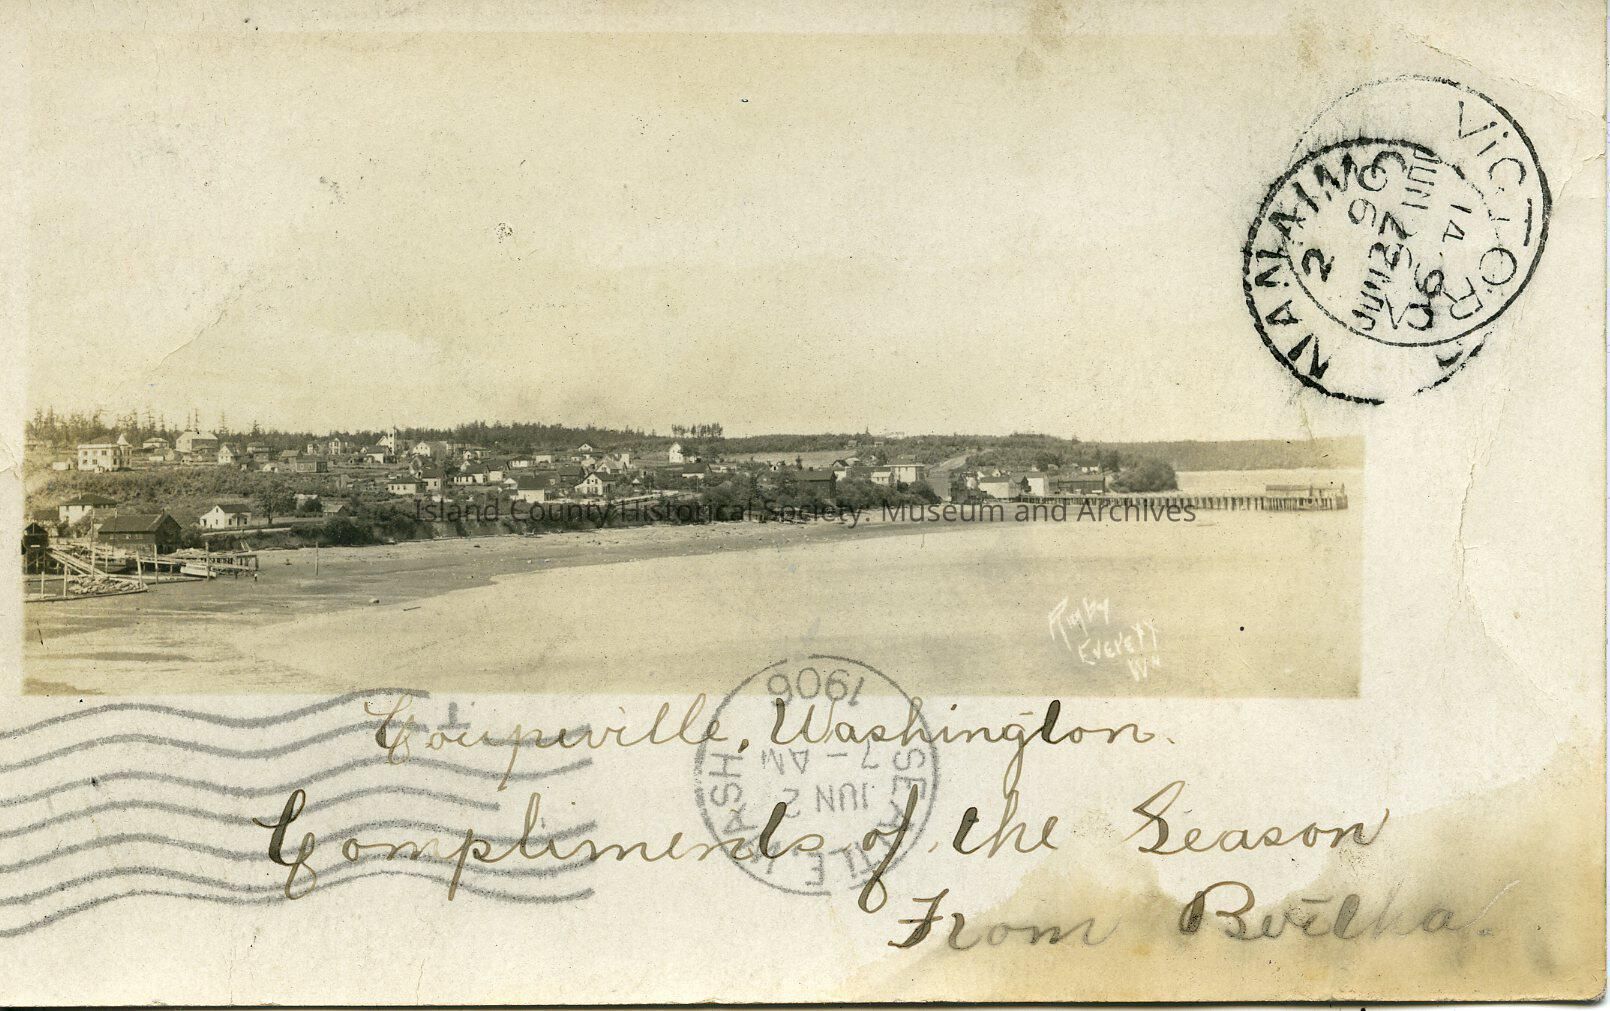 VICTORIA
JUN 14
NANAIMO
2
JUN 27
06
Island County Historical Society: Museum and Archives
Rigby
Everett
Wn
Coupeville, Washington.
Compliments of the Season
From Bertha.
SEATTLE, WASH.
JUN 2
7 - AM
1906